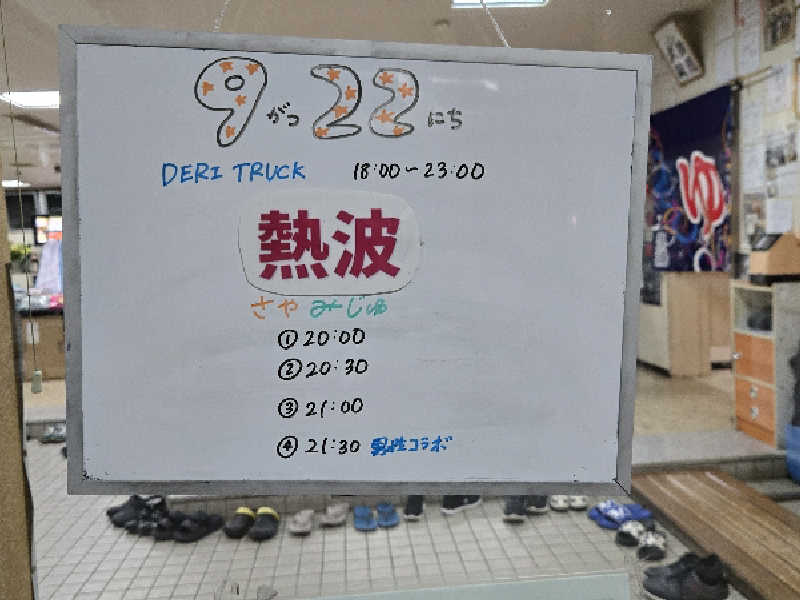 9がつ22にち
DERI TRUCK 18:00~23:00
熱波
さやみーじゅ
①20:00
②20:30
③21:00
④21:30 男性コラボ
ゆ